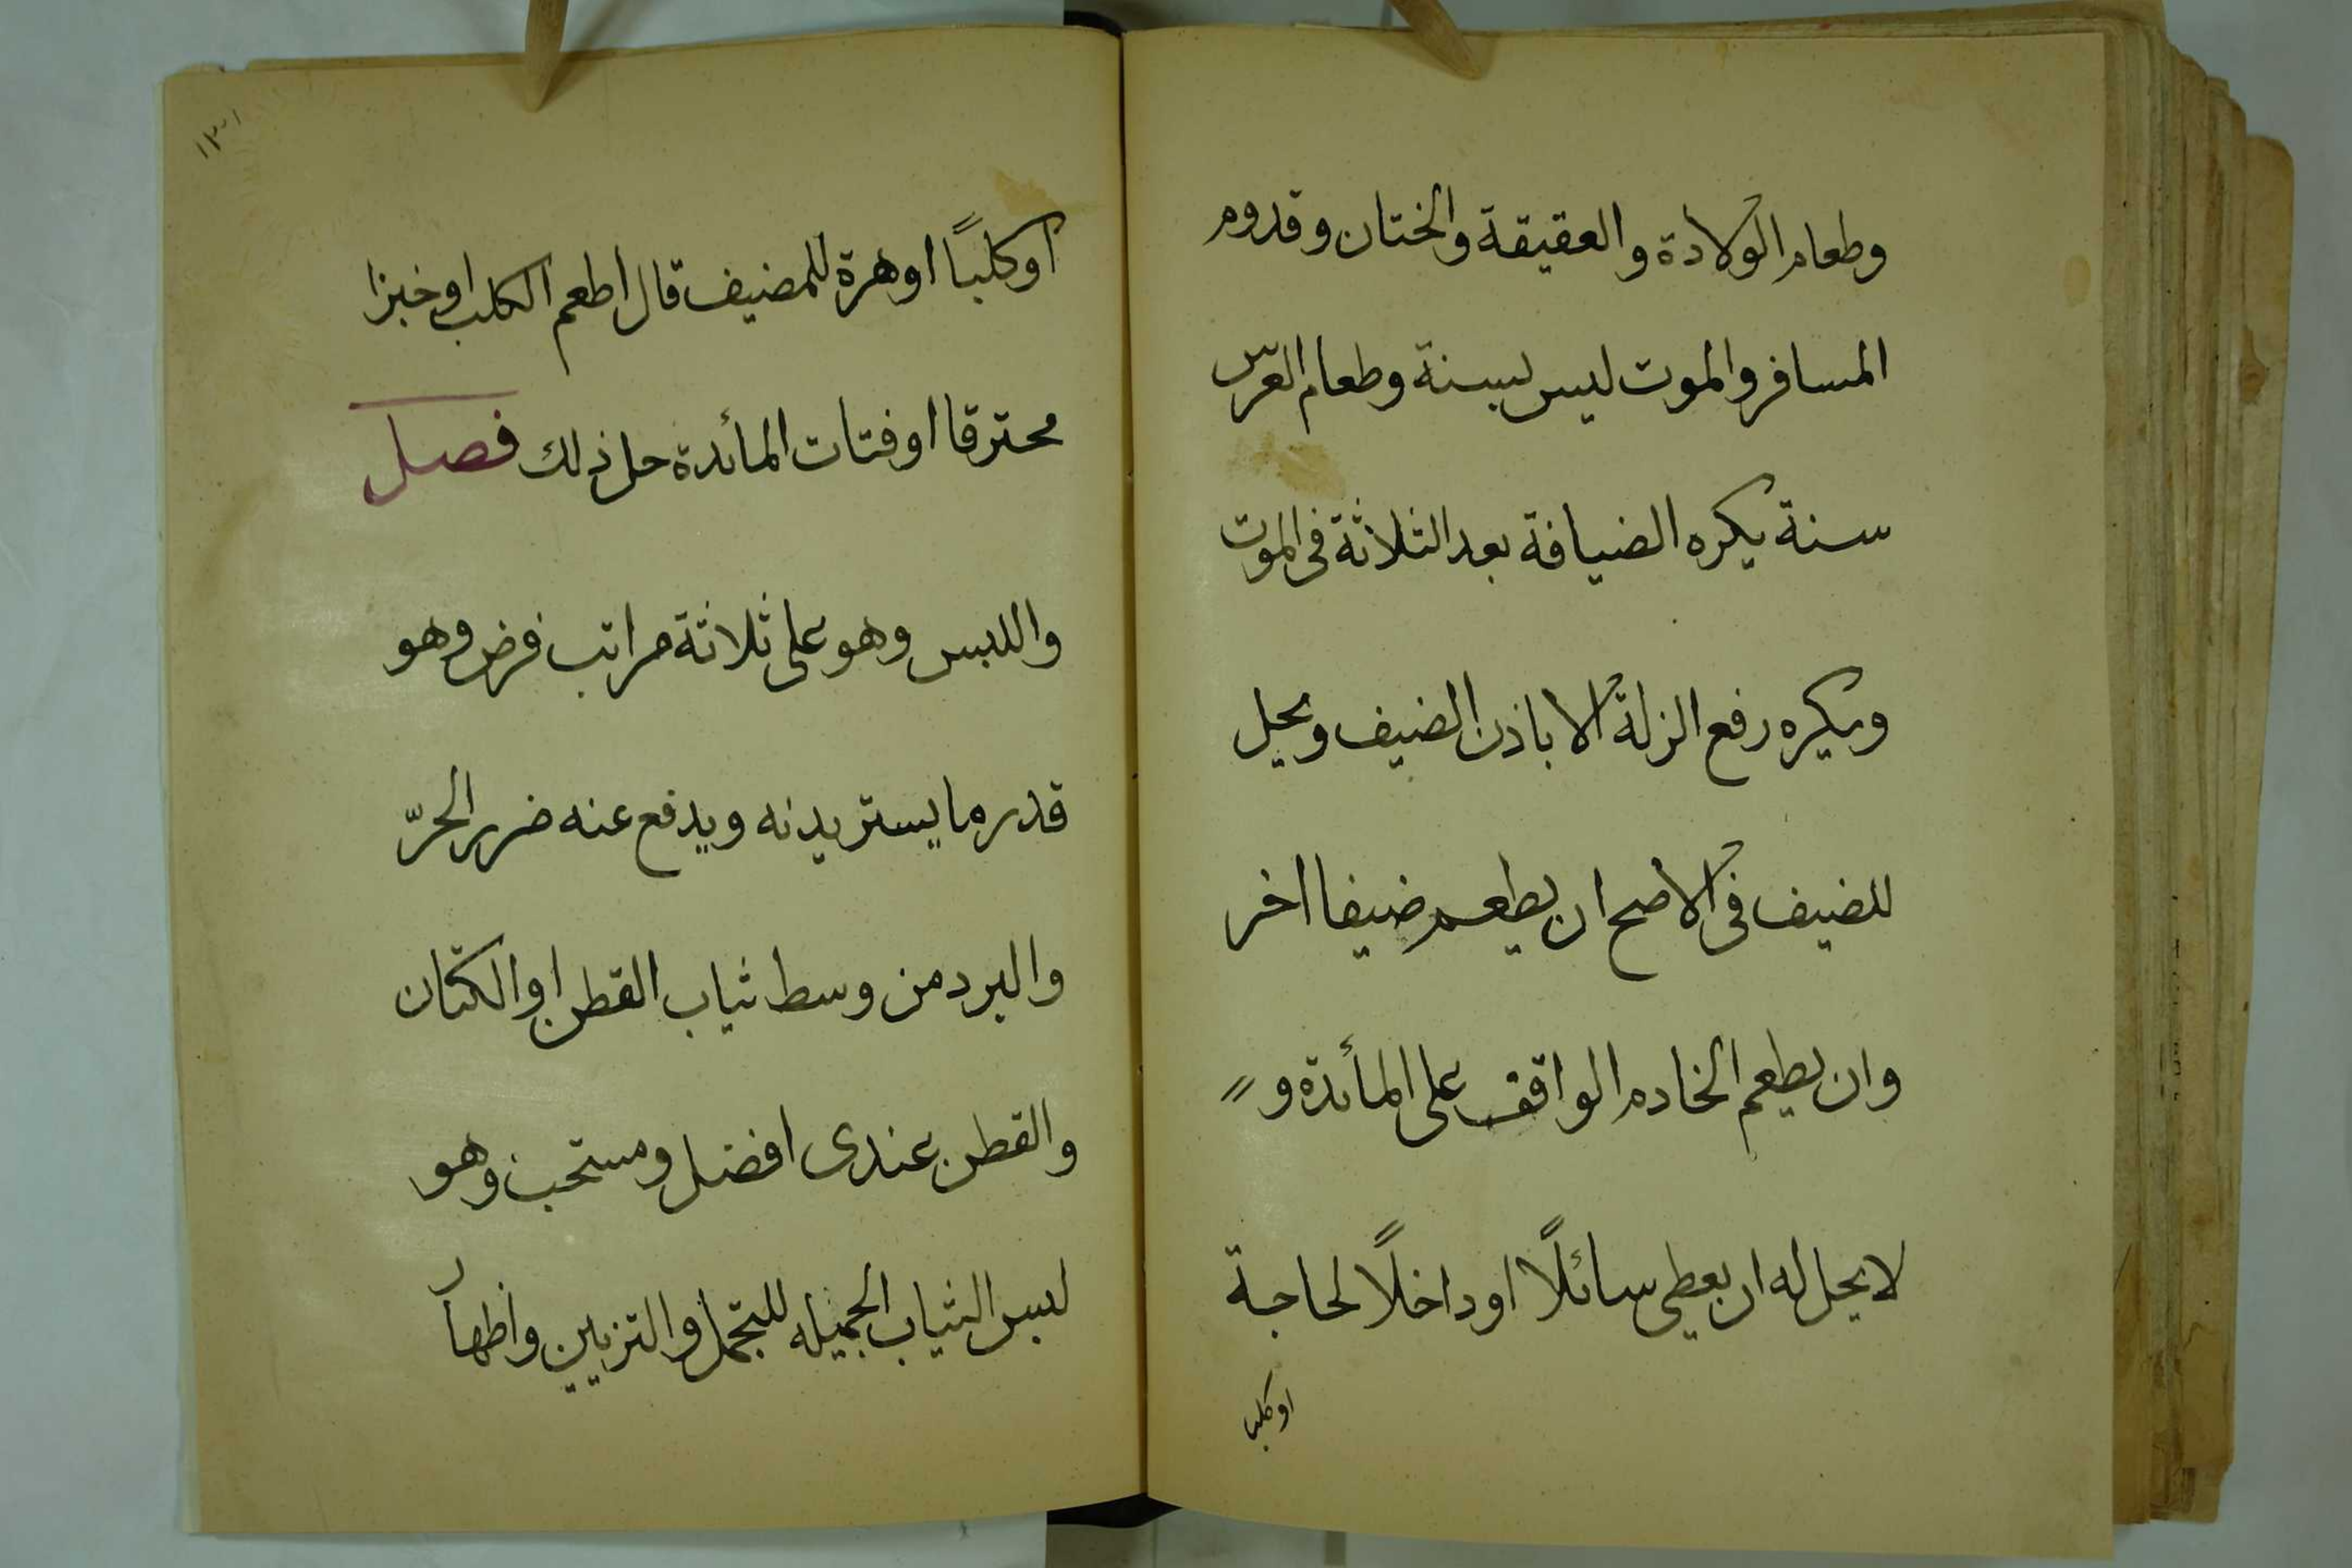 وطعام الولادة والعقيقة والختان وقدوم
المسافر والموت ليس بسنة وطعام العرس
سنة يكره الضيافة بعد الثلاثة فى الموت
ويكره رفع الزلة الا باذن الضيف ويحل
للضيف فى الاصح ان يطعم ضيفا اخر
وان يطعم الخادم الواقف على المأئدة و
لا يحل له ان يعطى سائلًا او داخلًا لحاجة
او كلبا
اوكلبًا اوهرة للمضيف قال اطعم الكلب اوخبزا
محترقا اوفتات المأئدة حل ذلك فصل
واللبس وهو على ثلاثة مراتب فرض وهو
قدر ما يستر بدنه ويدفع عنه ضرر الحرّ
والبرد من وسط ثياب القطن او الكتان
والقطن عندى افضل ومستحب وهو
لبس الثياب الجميله للتجمل والتزيين واظهار